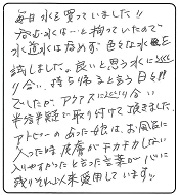 毎日水を買っていました!!
冷たい水は…と拘っていたので
水道水は諦めず、色々な水を
試しました。良いと思う水に
出合い、持ち帰ると言う日々!!
でしたが、アクアスに出合い
半信半疑で取り付けて頂きました。
アトピーのあった娘は、お風呂に
入った時、皮膚がチカチカしない
入りやすかったと言った言葉が心に
残りそれ以来愛用しています!!